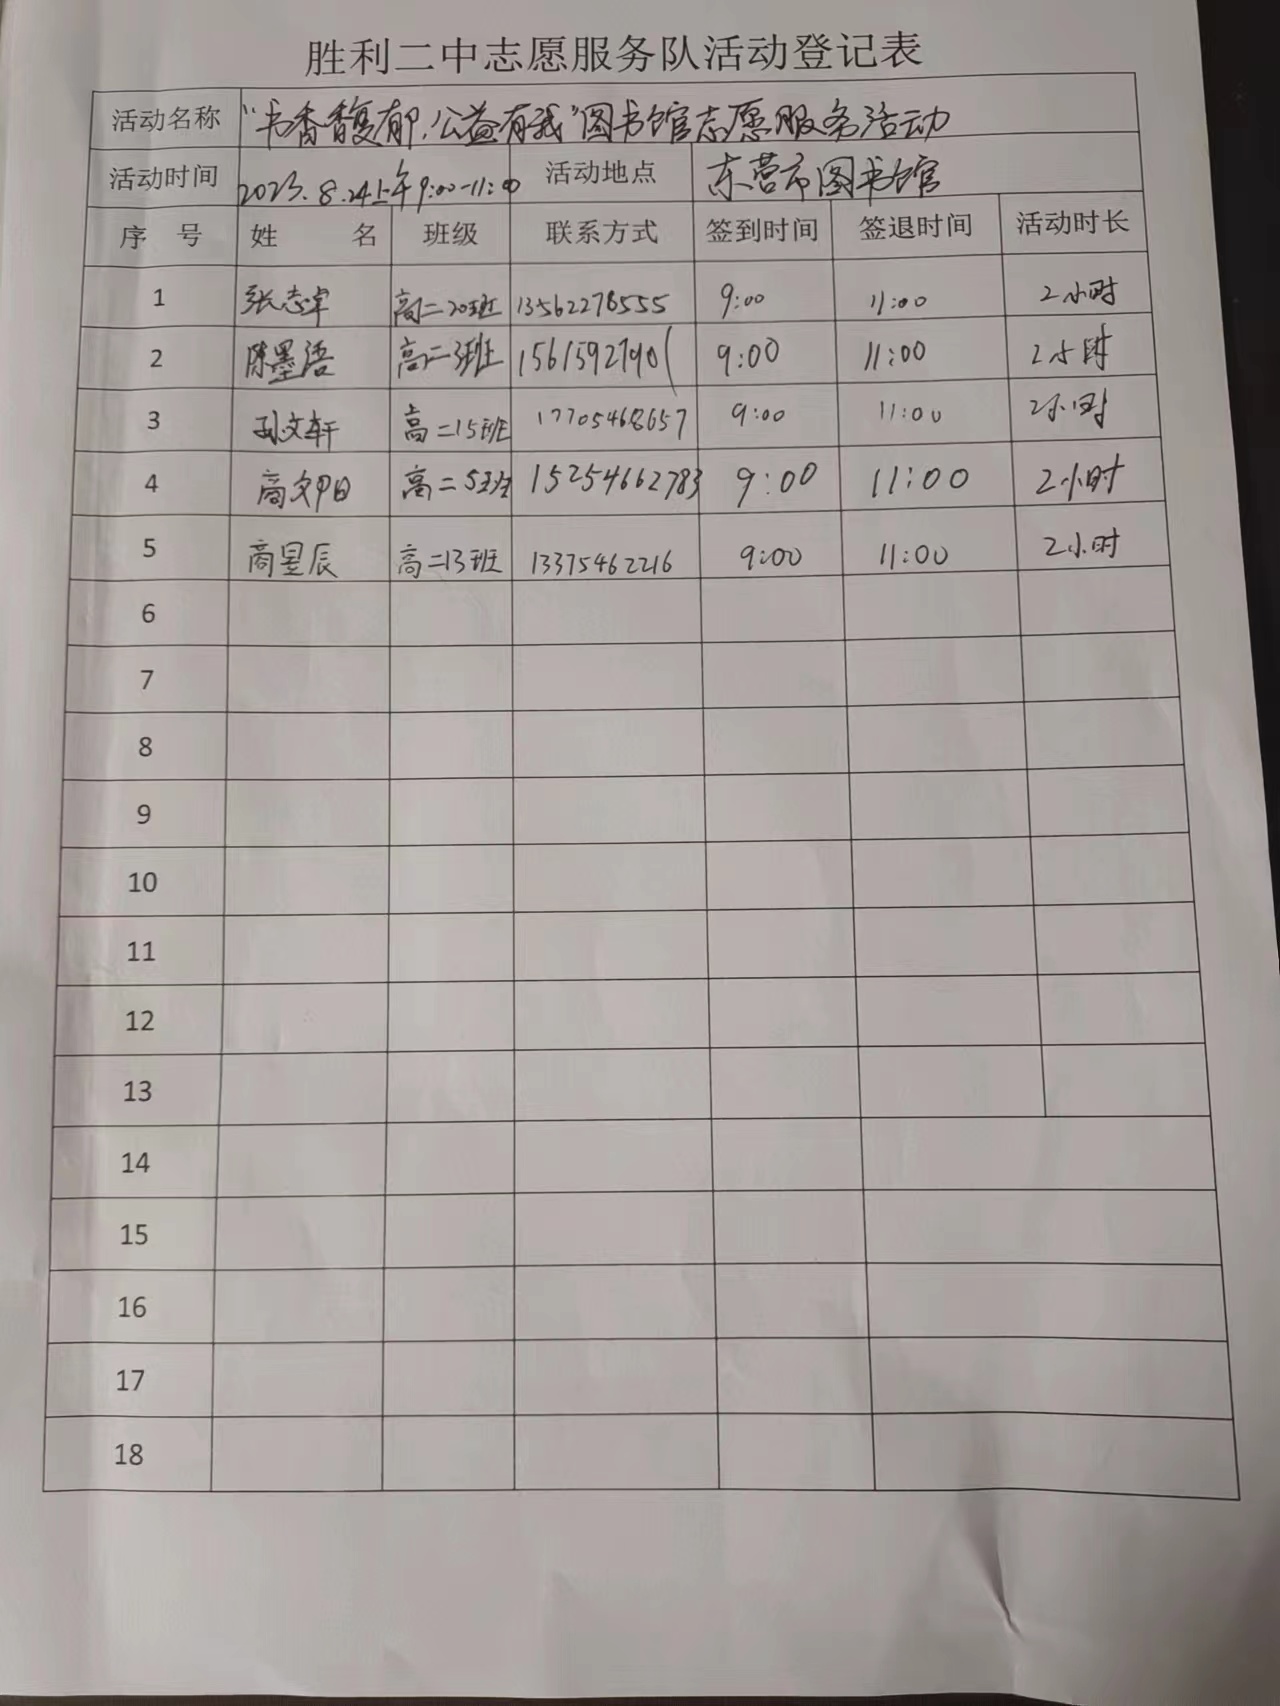 胜利二中志愿服务队活动登记表
活动名称 "书香馥郁,公益有我"图书馆志愿服务活动
活动时间 2023.8.24上午9:00-11:00 活动地点 东营市图书馆
序 号 姓 名 班级 联系方式 签到时间 签退时间 活动时长
1 张志卓 高二20班 13562278555 9:00 11:00 2小时
2 陈墨语 高二3班 9:00 11:00 2小时
3 孙文轩 高二15班 17705468657 9:00 11:00 2小时
4 高二5班 15254662783 9:00 11:00 2小时
5 商昱辰 高二13班 13375462216 9:00 11:00 2小时
6
7
8
9
10
11
12
13
14
15
16
17
18